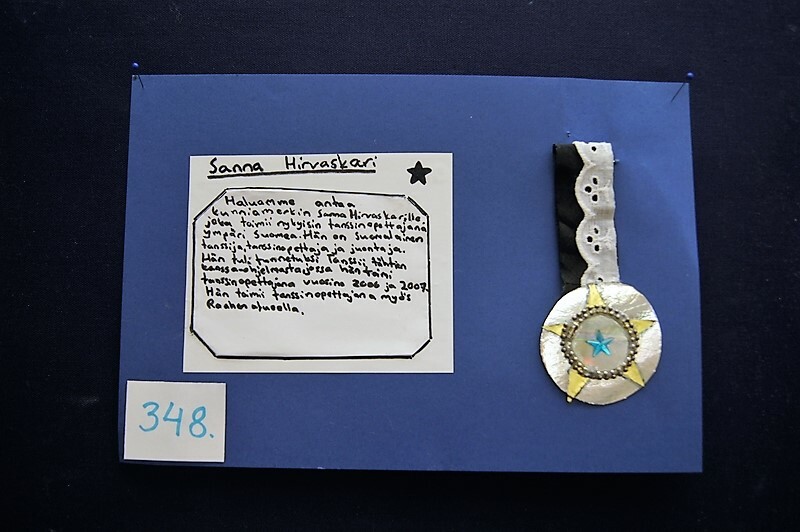 Sanna Hirvaskari
Haluamme antaa
kunniamerkin Sanna Hirvaskarille,
joka toimii nykyisin tanssinopettajana
ympäri Suomea. Hän on suomalainen
tanssija, tanssinopettaja ja juontaja.
Hän tuli tunnetuksi Tanssii tähtien
kanssa-ohjelmasta, jossa hän toimi
tanssinopettajana vuosina 2006 ja 2007.
Hän toimii tanssinopettajana myös
Raahen alueella.
348.